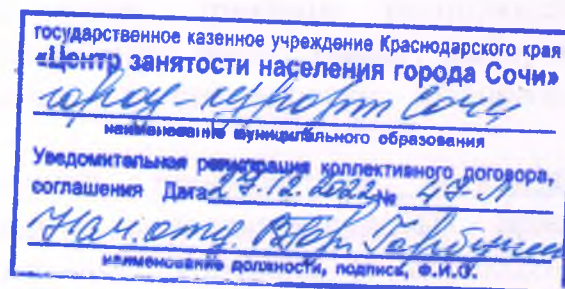 государственное казенное учреждение Краснодарского края
«Центр занятости населения города Сочи»
город-курорт Сочи
наименование муниципального образования
Уведомительная регистрация коллективного договора,
соглашения Дата 27.12.2022 № 47-Л
Нач. отд.
наименование должности, подпись, Ф.И.О.